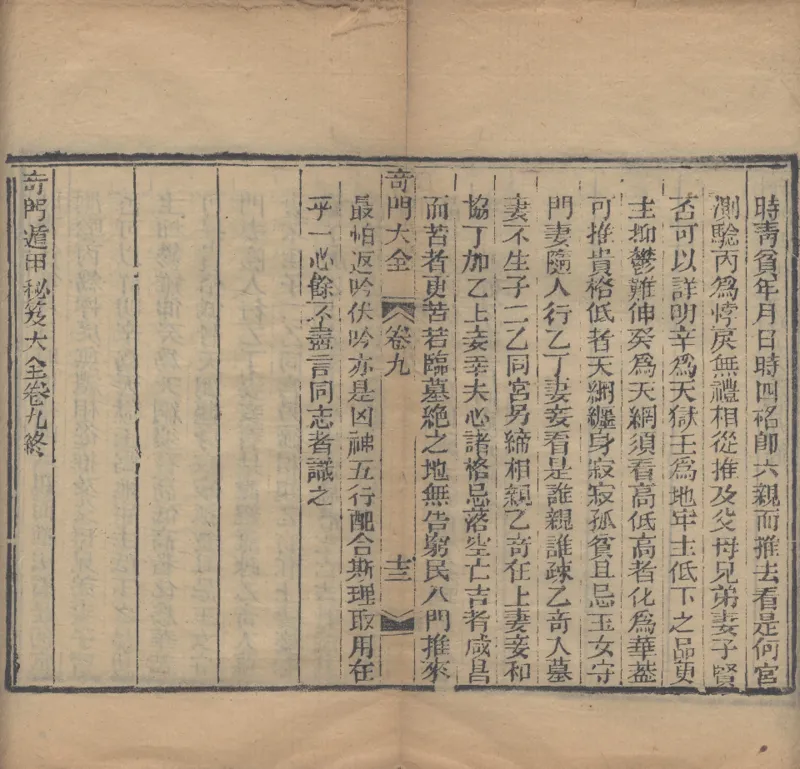 時靑貧年月日時四格師六親而推去看是何宮
測驗丙爲悖戾無禮相從推及父母兄弟妻子賢
否可以詳明辛爲天獄壬爲地牢主低下之品更
主抑鬱難伸癸爲天網須看高低高者化爲華蓋
可推貴格低者天網纏身寂寂孤貧且忌玉女守
門妻隨人行乙丁妻妾看是誰親誰疎乙奇入墓
妻不生子二乙同宮另締相親乙奇在上妻妾和
協丁加乙上妾奪夫心諸格忌落空亡吉者咸昌
而苦者更苦若臨墓絶之地無告窮民八門推來
奇門大全 卷九 十三
最怕返吟伏吟亦是凶神五行配合斯理取用在
乎一心餘不盡言同志者識之
奇門遁甲秘笈大全卷九終